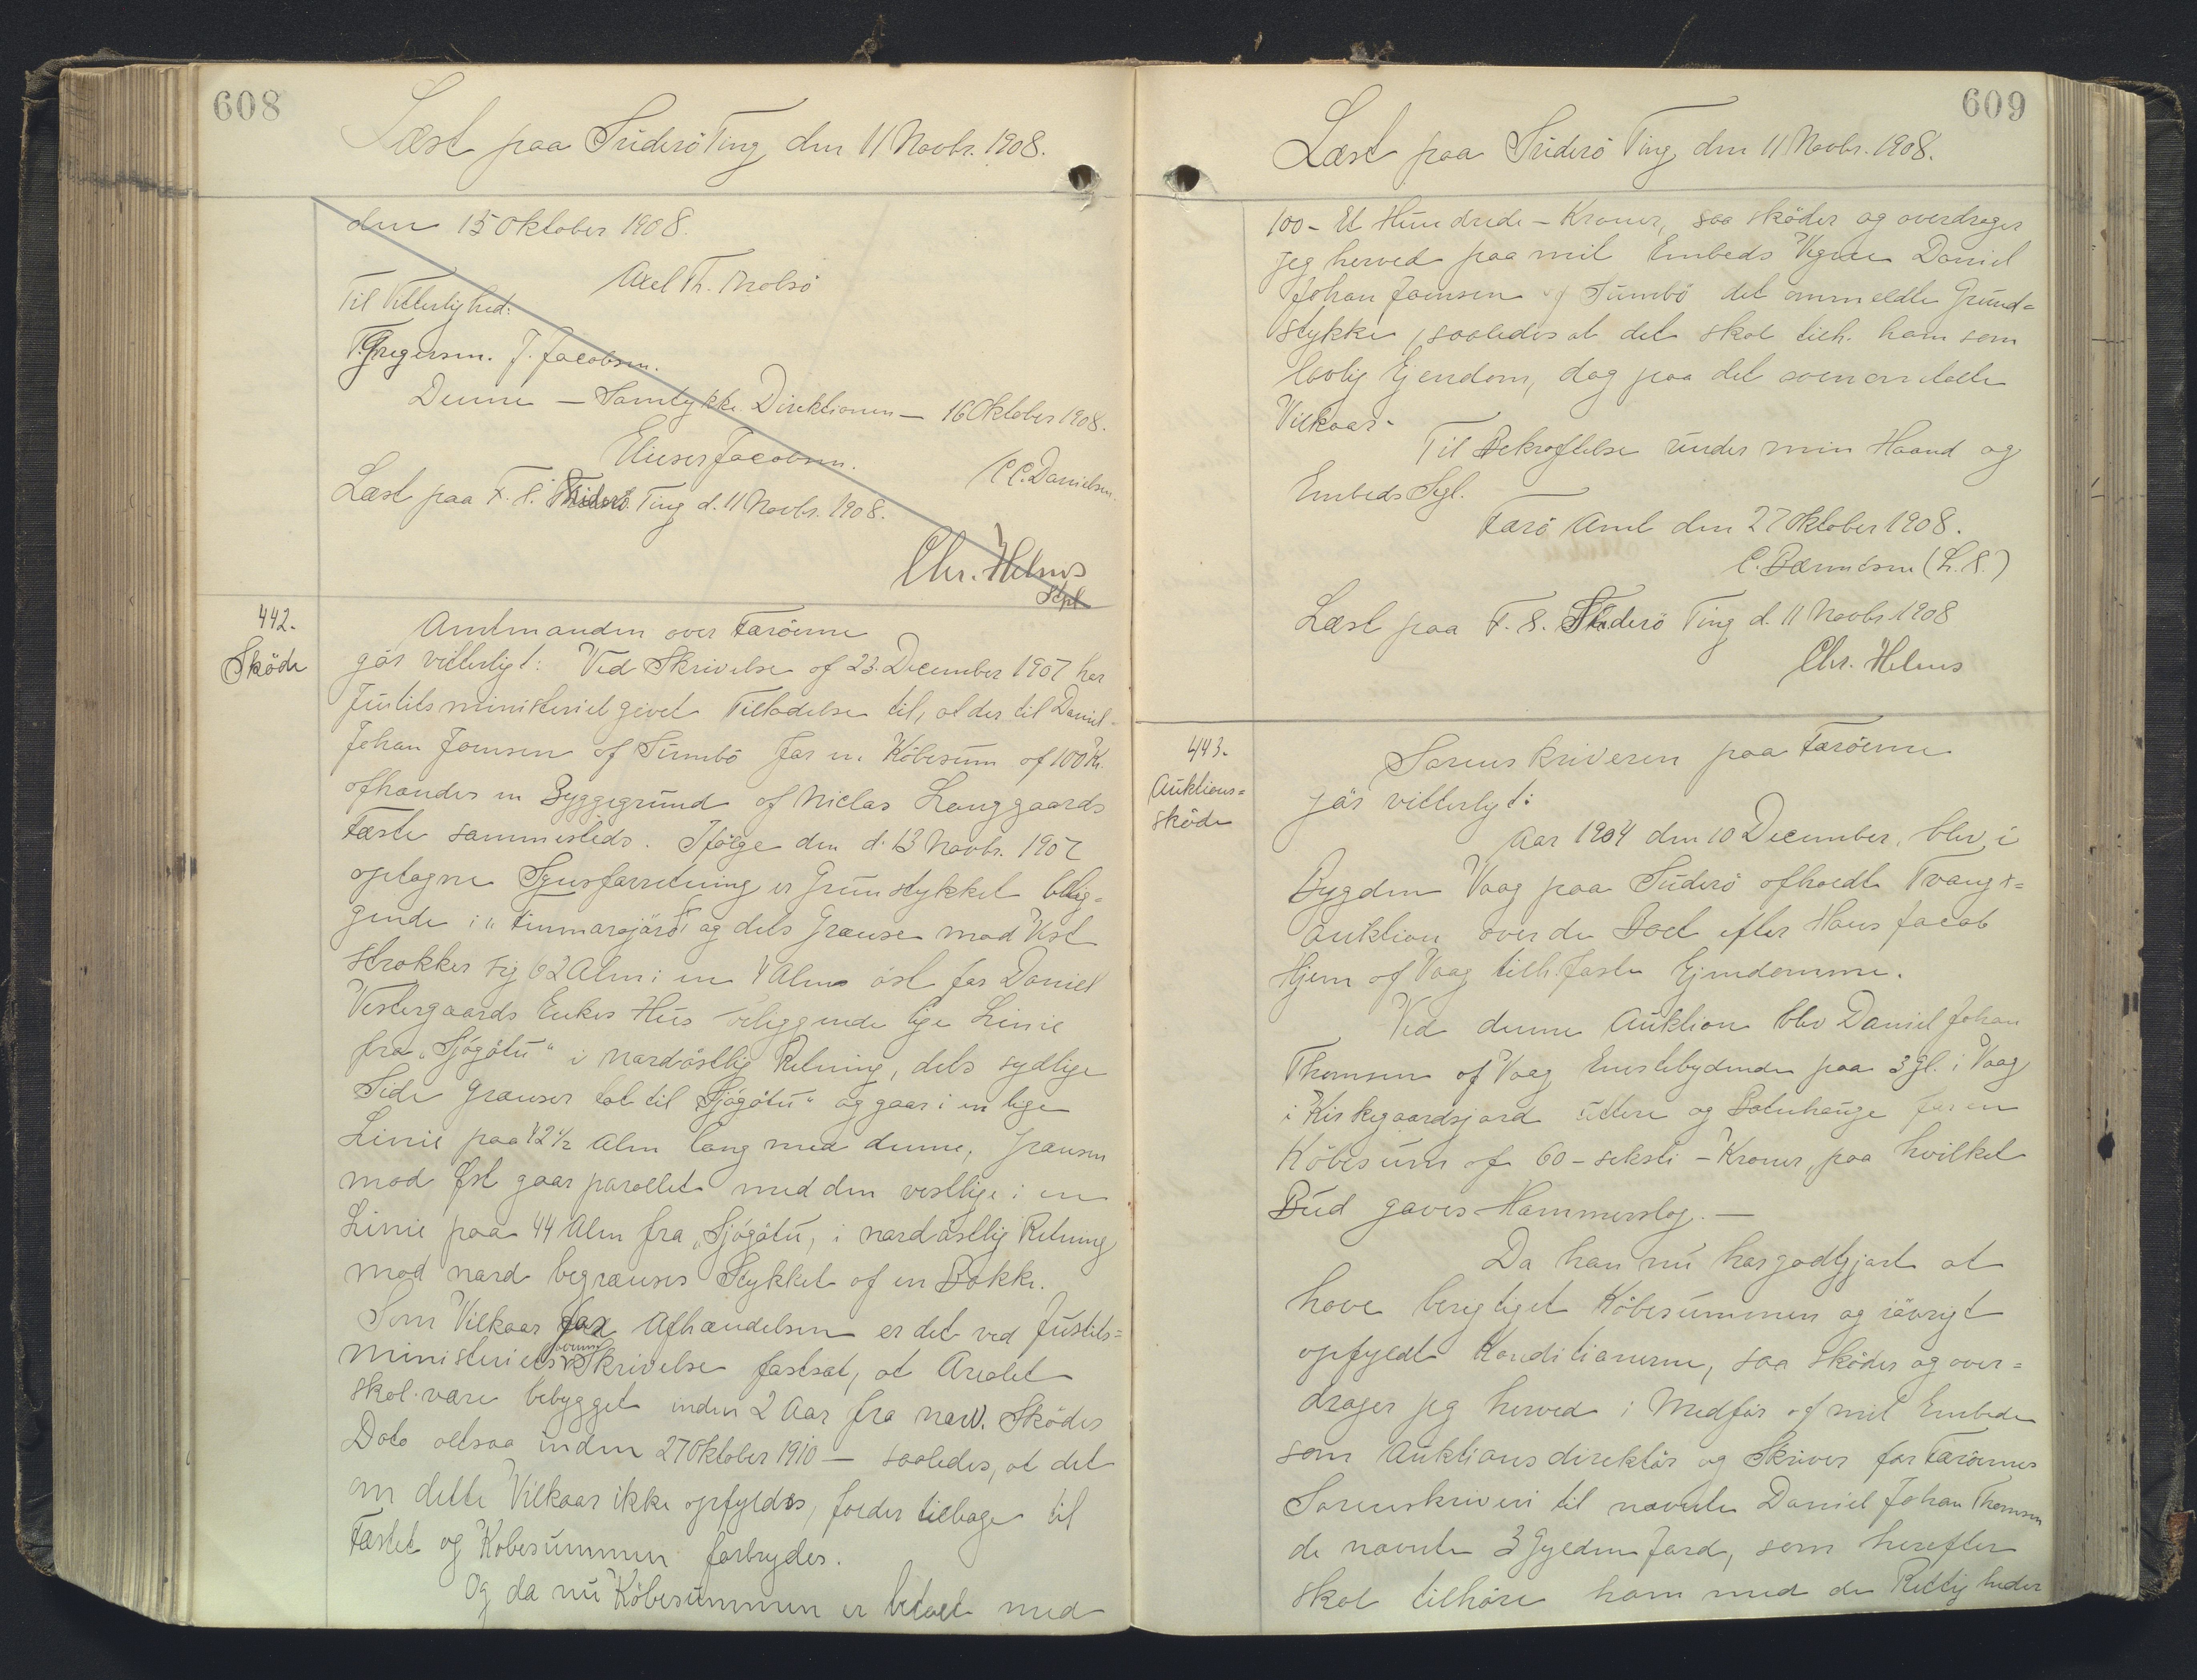 608
Læst paa Suderö Ting den 11 Novbr. 1908.
den 15 Oktober 1908.
Axel Th. Mohr
Til Vitterlighed:
T. Gregersen. J. Jacobsen.
Denne — Samtykke. Direktionen — 16 Oktober 1908.
Elieser Jacobsen.
C C. Danielsen.
Læst paa F. S. Suderö Ting d. 11 Novbr. 1908.
Chr. Helms
442.
Sköde
Amtmanden over Færöerne
gör vitterligt: Ved Skrivelse af 23. December 1907 har
Justitsministeriet givet Tilladelse til, at der til Daniel
Johan Joensen af Sumbö for en Köbesum af 100 Kr.
afhændes en Byggegrund af Niclas Langgaards
Fæste sammesteds. Ifölge den d. 13 Novbr. 1907
optagne Synsforretning er Grundstykket belig-
gende i og dets Grænse mod Vest
strækker sig 62 Alen i en 4 Alen öst for Daniel
Vestergaards Enkes Hus beliggende lige Linie
fra „Sjógötu" i nordöstlig Retning, dets sydlige
Side grænser lob til „Sjógötu" og gaar i en lige
Linie paa 42½ Alen lang med denne, Grænsen
mod Øst gaar parallelt med den vestlige i en
Linie paa 44 Alen fra „Sjógötu, i nordöstlig Retning
mod nord begrænses Stykket af en Bakke.
Som Vilkaar for Afhændelsen er det ved Justits=
ministeriets ovenn. Skrivelse fastsat, at Arealet
skal være bebygget inden 2 Aar fra nærv. Sködes
Dato altsaa inden 27 Oktober 1910 — saaledes, at det
om dette Vilkaar ikke opfyldes, falder tilbage til
Fæstet og Köbesummen forbrydes.
Og da nu Köbesummen er betalt med
609
Læst paa Suderö Ting den 11 Novbr. 1908.
100 - Et Hundrede - Kroner, saa sköder og overdrager
jeg herved paa mit Embeds Vegne Daniel
Johan Joensen af Sumbö det ommeldte Grund=
stykke, saaledes at det skal tilh. ham som
lovlig Ejendom, dog paa det ovenomtalte
Vilkaar.
Til Bekræftelse under min Haand og
Embeds Segl.
Færö Amt den 27 Oktober 1908.
C. Bærentsen (L. S.)
Læst paa F. S. Suderö Ting d. 11 Novbr. 1908
Chr. Helms
443.
Auktions=
sköde
Sorenskriveren paa Færöerne
gör vitterligt:
Aar 1904 den 10 December, blev i
Bygden Vaag paa Suderö afholdt Tvangs=
auktion over de Boet efter Hans Jacob
Hjem af Vaag tilh. faste Ejendomme.
Ved denne Auktion blev Daniel Johan
Thomsen af Vaag Enestebydende paa 3 Gl. i Vaag
i Kirkegaardsjord uttere og Botnhauge for en
Köbesum af 60 - seksti - Kroner, paa hvilket
Bud gaves Hammerslag. —
Da han nu har godtgjort at
have berigtiget Köbesummen og iövrigt
opfyldt Konditionerne, saa sköder og over=
drager jeg herved i Medför af mit Embede
som Auktionsdirektör og Skriver for Færöernes
Sorenskriveri til nævnte Daniel Johan Thomsen
de nævnte 3 Gylden Jord, som herefter
skal tilhöre ham med de Rettigheder